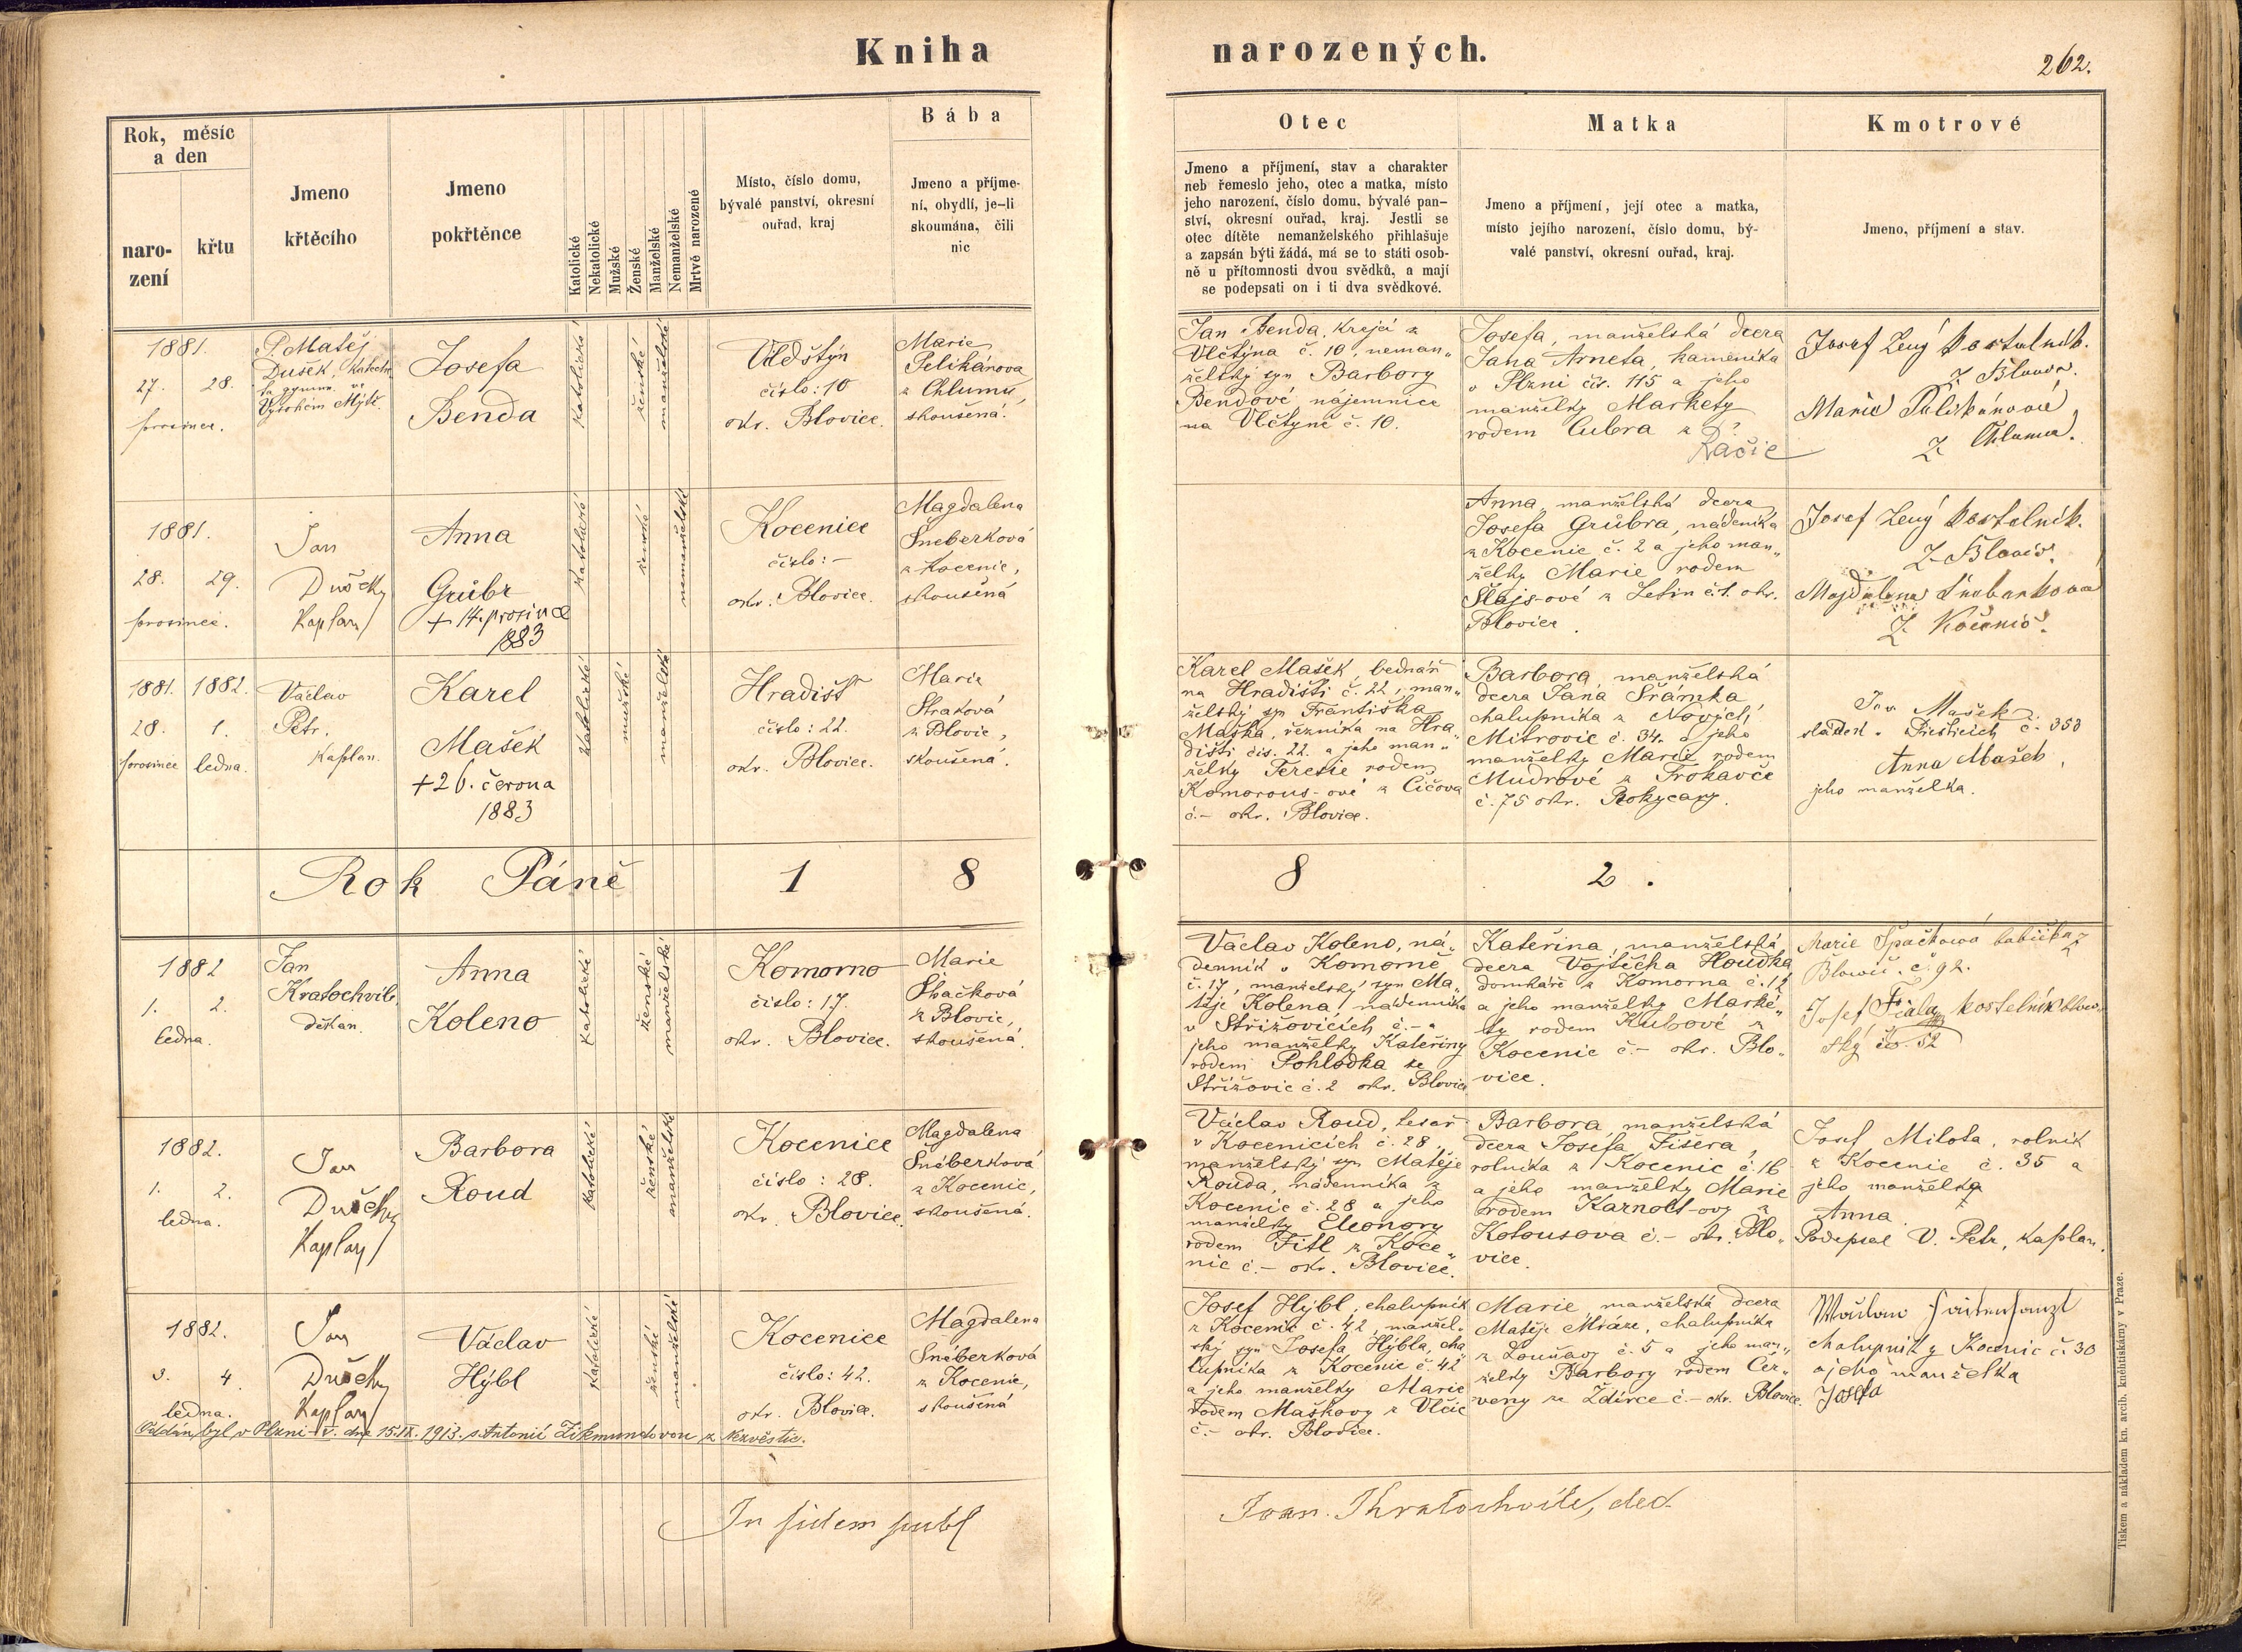 Kniha narozených.
262.
Rok, měsíc
a den
naro-
zení
křtu
Jmeno
křtěcího
Jmeno
pokřtěnce
Katolické
Nekatolické
Mužské
Ženské
Manželské
Nemanželské
Mrtvě narozené
Místo, číslo domu,
bývalé panství, okresní
ouřad, kraj
Bába
Jmeno a příjme-
ní, obydlí, je-li
skoumána, čili
nic
Otec
Jmeno a příjmení, stav a charakter
neb řemeslo jeho, otec a matka, místo
jeho narození, číslo domu, bývalé pan-
ství, okresní ouřad, kraj. Jestli se
otec dítěte nemanželského přihlašuje
a zapsán býti žádá, má se to státi osob-
ně u přítomnosti dvou svědků, a mají
se podepsati on i ti dva svědkové.
Matka
Jmeno a příjmení, její otec a matka,
místo jejího narození, číslo domu, bý-
valé panství, okresní ouřad, kraj.
Kmotrové
Jmeno, příjmení a stav.
1881.
27. 28.
prosince.
P. Matěj
Dušek, Katech.
Vysokém Mýtě.
Josefa
Benda
katolické
ženské
manželské
Vlčtýn
číslo: 10
okr. Blovice.
Marie
Pelikánova
z Chlumu,
skoušená.
Jan Benda, krejčí z
Vlčtýna č. 10, neman„
želský syn Barbory
Bendové nájemnice
na Vlčtýně č. 10.
Josefa, manželská dcera
Jana Arneta, kameníka
v Plzni čís. 115 a jeho
manželky Markety
rodem Cubra z ?
Račic
Josef Zený kostelník.
Z Blovic.
Marie Pelikánová
Z Chlumu.
1881.
28. 29.
prosince.
Jan
Dušek
Kaplan
Anna
Grübr
+ 14. prosince
1883
katolické
ženské
nemanželské
Kocenice
číslo: -
okr. Blovice.
Magdalena
Šneberková
z Kocenic,
skoušená
Anna, manželská dcera
Josefa Grübra, nádeníka
z Kocenic č. 2 a jeho man„
želky Marie rodem
Šlajs-ové z Letin č. 1. okr.
Blovice.
Josef Zený kostelník.
Z Blovic.
Z Kocenic.
1881. 1882.
28. 1.
prosince ledna.
Václav
Petr.
Kaplan.
Karel
Mašek
+ 26. června
1883
katolické
mužské
manželské
Hradišť
číslo: 22.
okr. Blovice.
Marie
Straková
z Blovic,
skoušená.
Karel Mašek, bednář
na Hradišti č. 22, man„
želský sy Františka
Maška, řezníka na Hra„
dišti čís. 22. a jeho man„
želky Terezie rodem
Komorous-ové z Číčova
č.- okr. Blovice.
Barbora, manželská
dcera Jana Šrámka,
chalupníka z Nových
Mitrovic č. 34. a jeho
manželky Marie rodem
Mudrové z Trokavče
č. 75 okr. Rokycany.
Jan Mašek
sládek v Přešticích č. 353
Anna Mašek,
jeho manželka.
Rok Páně 1 8 8 2.
1882
1. 2.
ledna.
Jan
Kratochvile
děkan.
Anna
Koleno
katolické
ženské
manželské
Komorno
číslo: 17.
okr. Blovice.
Marie
Špačková
z Blovic,
skoušená.
Václav Koleno, ná„
denník v Komorně
č. 17, manželský syn Ma„
těje Kolena, nádenníka
v Střížovicích č.- a
jeho manželky Kateřiny
rodem Pohlodka ze
Střížovic č. 2 okr. Blovice
Kateřina, manželská
dcera Vojtěcha Houdka,
domkáře z Komorna č. 12
a jeho manželky Marké„
ty rodem Kubové z
Kocenic č.- okr. Blo„
vice.
Marie Špačková babička z
Blowic. č. 92.
Josef Fiala kostelník blov
ský čo. 52
1882.
1. 2.
ledna.
Jan
Dušek
Kaplan
Barbora
Roud
katolické
ženské
manželské
Kocenice
číslo: 28.
okr. Blovice.
Magdalena
Šneberková
z Kocenic,
skoušená.
Václav Roud, tesař
v Kocenicích č. 28,
manželský syn Matěje
Rouda, nádenníka z
Kocenic č. 28 a jeho
manželky Eleonory
rodem Fitl z Koce„
nic č.- okr. Blovice.
Barbora, manželská
dcera Josefa Fišera,
rolníka z Kocenic č. 16
a jeho manželky Marie
rodem Karnolt-ovy z
Kotousova č.- okr. Blo„
vice.
Josef Milota, rolník
z Kocenic č. 35 a
jeho manželka
Anna.
Podepsal V. Petr, kaplan.
1882.
3. 4.
ledna.
Jan
Dušek
Kaplan
Václav
Hýbl
katolické
ženské
manželské
Kocenice
číslo: 42.
okr. Blovice.
Magdalena
Šneberková
z Kocenic,
skoušená
Oddán byl v Plzni dne 15.IX. 1913. s Antonií Zikmundovou z Nezvěstic.
Josef Hýbl, chalupník
z Kocenic č. 42, manžel„
ský syn Josefa Hýbla, cha„
lupníka z Kocenic č. 42
a jeho manželky Marie
rodem Maškovy z Vlčic
č.- okr. Blovice.
Marie, manželská dcera
Matěje Mráze, chalupníka
z Louňavy č. 5 a jeho man„
želky Barbory rodem Čer„
veny ze Ždírce č.- okr. Blovice.
chalupník z Kocenic č. 30
a jeho manželka
Josefa
In fidem publ
Joan. Kratochvile, dec.
Tiskem a nákladem kn. arcib. knihtiskárny v Praze.